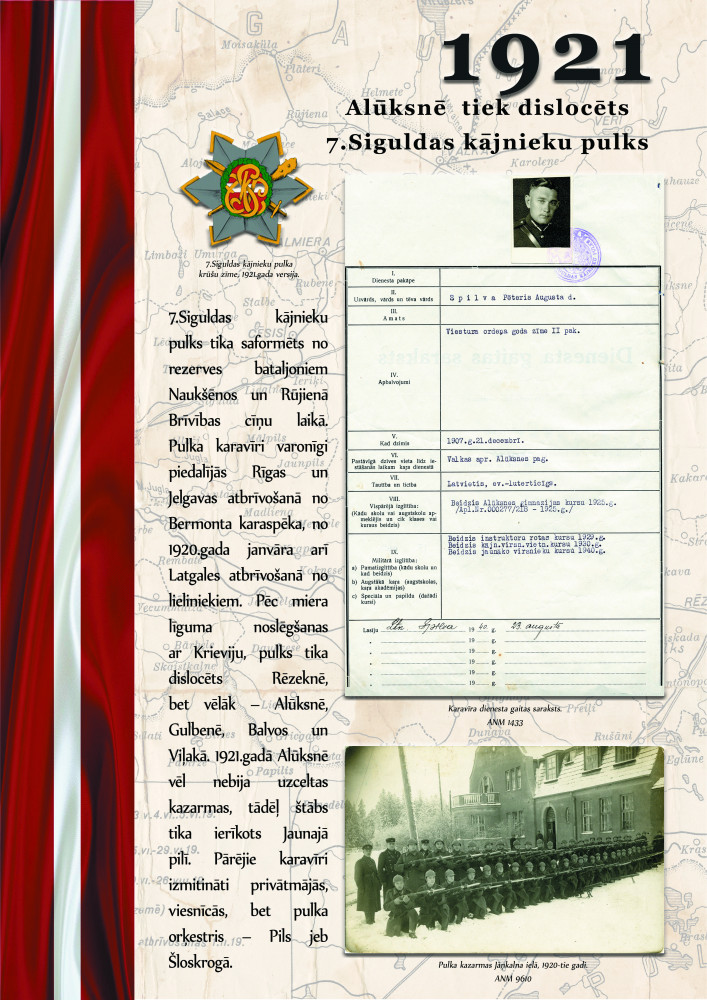 1921
Alūksnē tiek dislocēts
7.Siguldas kājnieku pulks
7.Siguldas kājnieku pulka
krūšu zīme, 1921.gada versija.
7.Siguldas kājnieku
pulks tika saformēts no
rezerves bataljoniem
Naukšēnos un Rūjienā
Brīvības cīņu laikā.
Pulka karavīri varonīgi
piedalījās Rīgas un
Jelgavas atbrīvošanā no
Bermonta karaspēka, no
1920.gada janvāra arī
Latgales atbrīvošanā no
lieliniekiem. Pēc miera
līguma noslēgšanas
ar Krieviju, pulks tika
dislocēts Rēzeknē,
bet vēlāk – Alūksnē,
Gulbenē, Balvos un
Viļakā. 1921.gadā Alūksnē
vēl nebija uzceltas
kazarmas, tādēļ štābs
tika ierīkots Jaunajā
pilī. Pārējie karavīri
izmitināti privātmājās,
viesnīcās, bet pulka
orķestris – Pils jeb
Šloskrogā.
I.
Dienesta pakāpe
II.
Uzvārds, vārds un tēva vārds
Spilva Pēteris Augusta d.
III.
Amats
IV.
Apbalvojumi
Viestura ordeņa goda zīme II pak.
V.
Kad dzimis
1907.g.21.decembrī.
VI.
Pastāvīgā dzīves vieta līdz ie-
stāšanās laikam kaŗa dienestā
Valkas apr. Alūksnes pag.
VII.
Tautība un ticība
Latvietis, ev.-luterticīgs.
VIII.
Vispārējā izglītība:
(Kādu skolu vai augstskolu ap-
meklējis un cik klases vai
kursus beidzis)
Beidzis Alūksnes ģimnazijas kursu 1925.g.
/Apl.Nr.000277/21B - 1925.g./
IX.
Militārā izglītība:
a) Pamatizglītība (kādu skolu un
kad beidzis)
b) Augstākā kaŗa (augstskolas,
kaŗa akadēmijas)
c) Speciala un papildu (dažādi
kursi)
Beidzis instruktoru rotas kursu 1929.g.
Beidzis kājn.virsn.vietn.kursu 1930.g.
Beidzis jaunāko virsnieku kursu 1940.g.
Lasīju 19 40. g. 23. augusts
" 19 g.
" 19 g.
" 19 g.
" 19 g.
" 19 g.
Karavīra dienesta gaitas saraksts.
ANM 1433
Pulka kazarmas Jāņkalna ielā, 1920-tie gadi.
ANM 9610
Moisaküla
Plāteri
Helmete
Rūjiena
Salass
Karolene
Limbaži
Umurga
Stalbe
CĒSIS
Mālpils
Jaunpils
Madliena
Vecumuiža
Bārbele
Skaistkalne
Papilis
Dunava
Rušāni
Preiļi
Eglūne